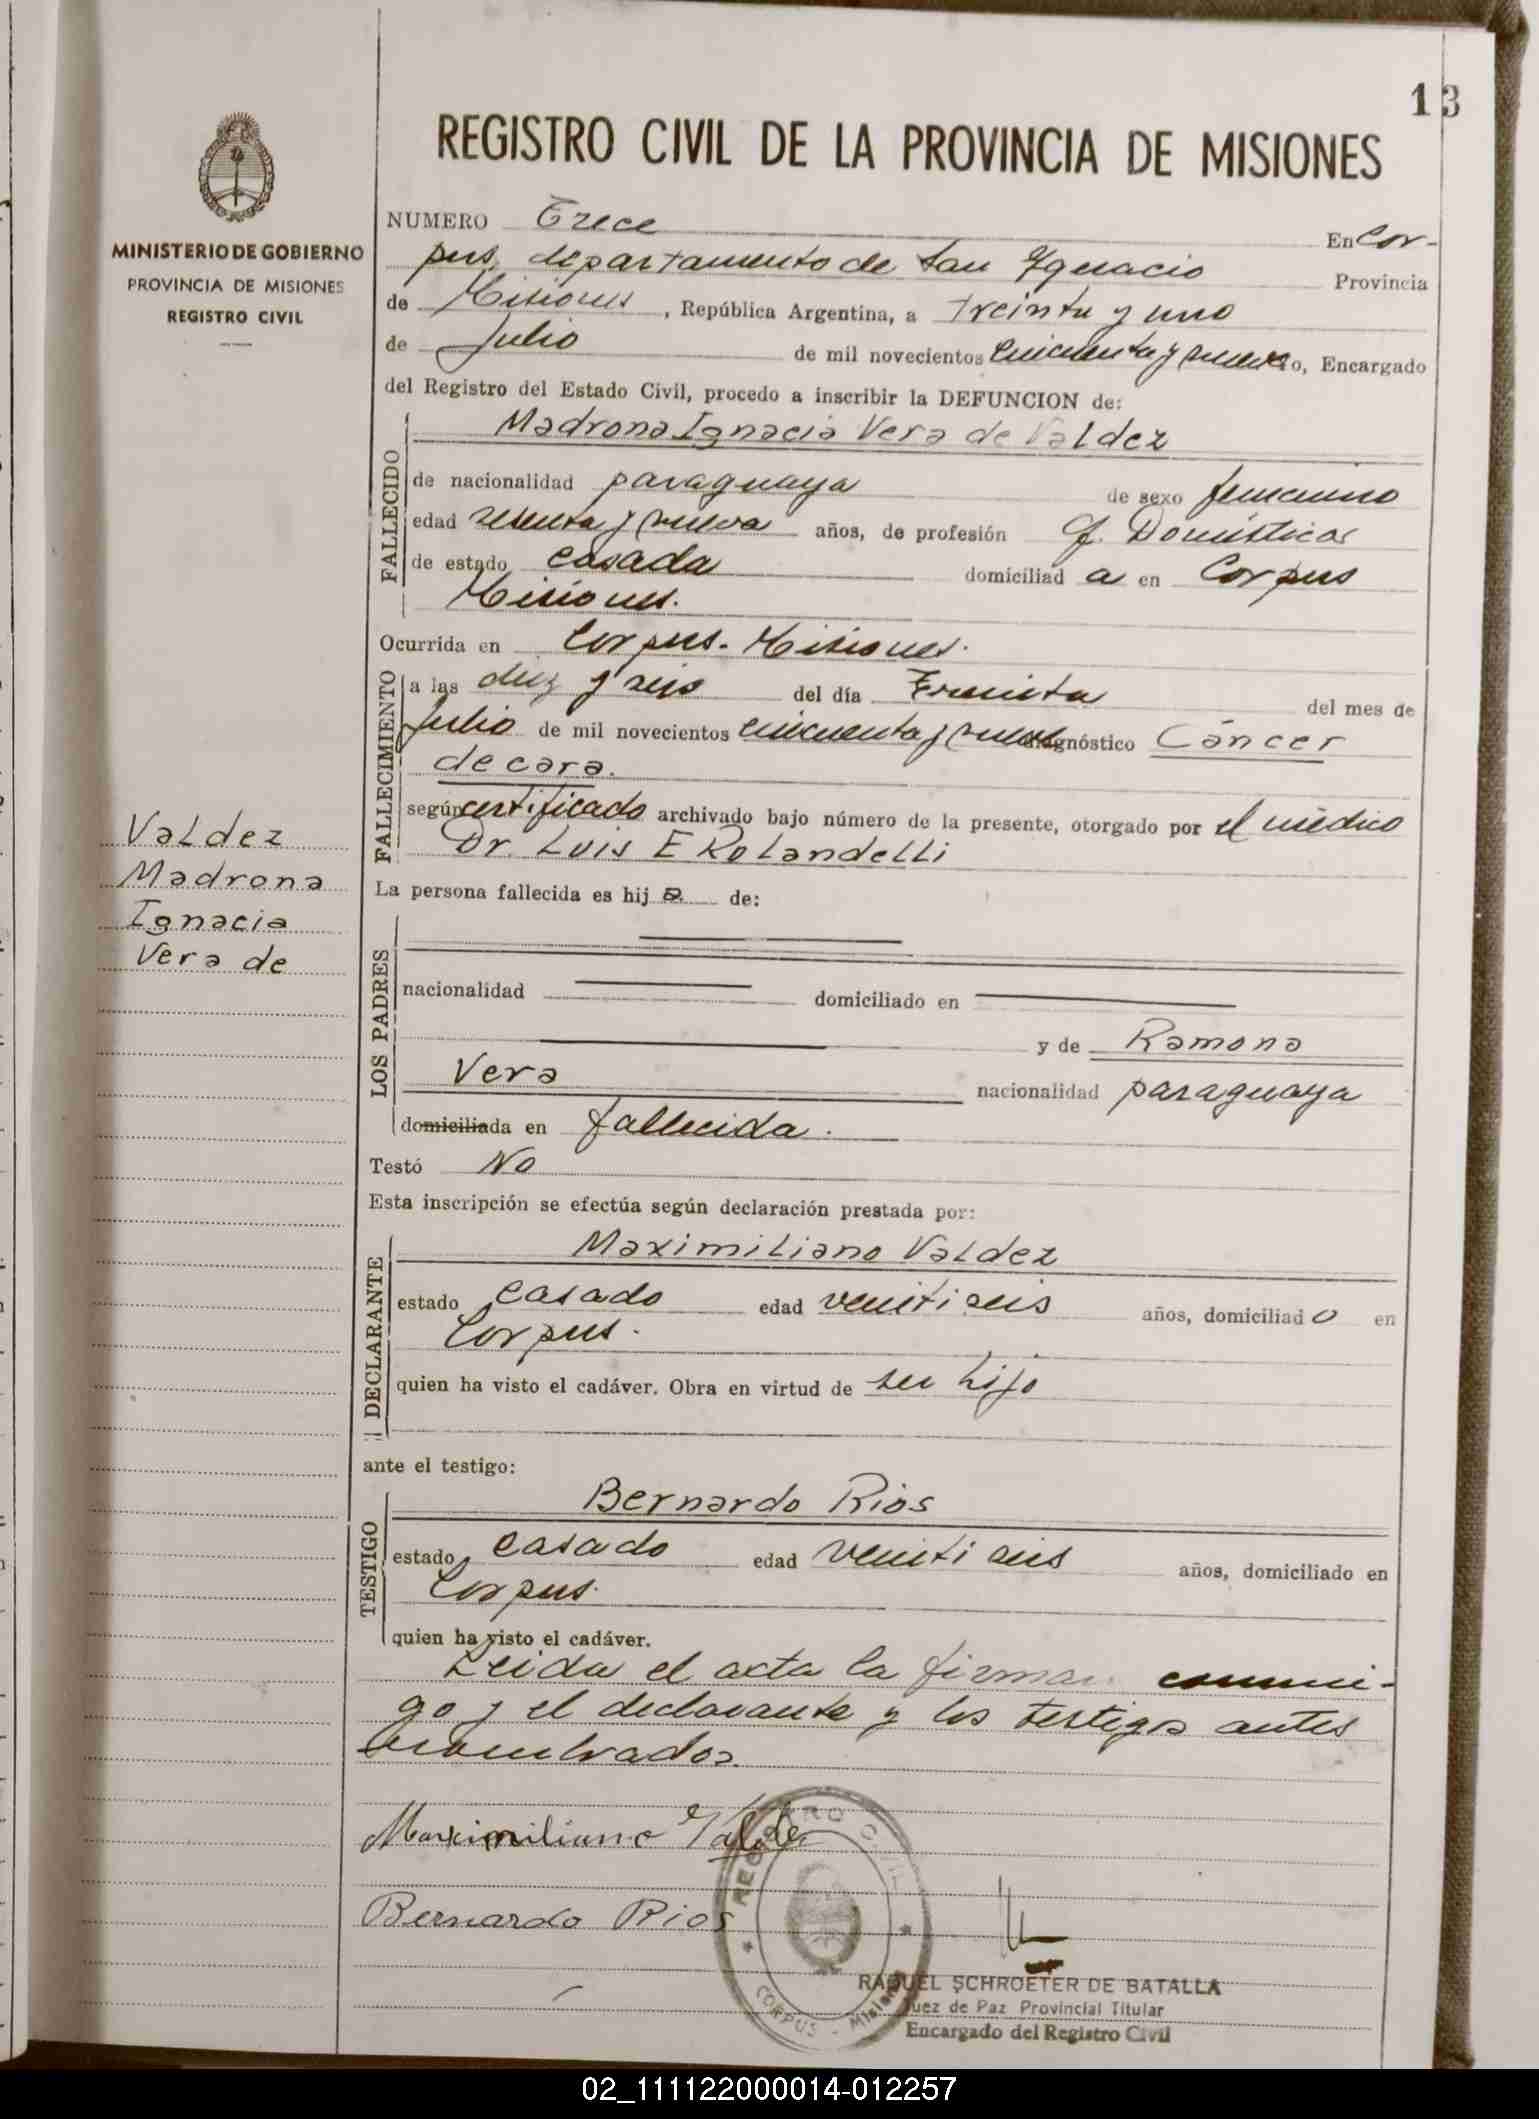 13
REGISTRO CIVIL DE LA PROVINCIA DE MISIONES
MINISTERIO DE GOBIERNO
PROVINCIA DE MISIONES
REGISTRO CIVIL
NUMERO Trece En Cor-
pus, departamento de San Ygnacio Provincia
de Misiones, República Argentina, a treinta y uno
de Julio de mil novecientos cincuenta y nueve o, Encargado
del Registro del Estado Civil, procedo a inscribir la DEFUNCION de:
FALLECIDO
Madrona Ignacia Vera de Valdez
de nacionalidad paraguaya de sexo femenino
edad sesenta y nueva años, de profesión Q. Domésticos
de estado casada domiciliad a en Corpus
Misiones.
Ocurrida en Corpus - Misiones.
FALLECIMIENTO
a las diez y seis del día Treinta del mes de
Julio de mil novecientos cincuenta y nueve diagnóstico Cáncer
de cara.
según certificado archivado bajo número de la presente, otorgado por el médico
Dr. Luis E Rolandelli
Valdez
Madrona
Ignacia
Vera de
La persona fallecida es hij a de:
LOS PADRES
nacionalidad domiciliado en
y de Ramona
Vera nacionalidad paraguaya
domiciliada en fallecida.
Testó No
Esta inscripción se efectúa según declaración prestada por:
DECLARANTE
Maximiliano Valdez
estado casado edad veintiseis años, domiciliad o en
Corpus.
quien ha visto el cadáver. Obra en virtud de su hijo
ante el testigo:
TESTIGO
Bernardo Rios
estado casado edad veintiseis años, domiciliado en
Corpus.
quien ha visto el cadáver.
Leida el acta la firman conmi-
go y el declarante y los testigos antes
nombrados.
Maximiliano Valdez
Bernardo Rios
REGISTRO CIVIL
CORPUS - Misiones
RAQUEL SCHROETER DE BATALLA
Juez de Paz Provincial Titular
Encargado del Registro Civil
02_111122000014-012257